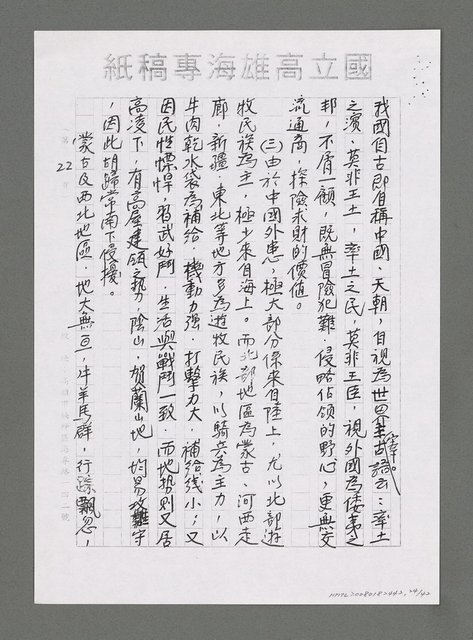 國立高雄海專稿紙
我國自古即自稱中國、天朝，自視為世界主宰。古諺云：率土
之濱，莫非王土，率土之民，莫非王臣，視外國為倭夷之
邦，不屑一顧，既無冒險犯難、侵略佔領的野心，更無交
流通商，探險求財的價值。
㈢由於中國外患，極大部分係來自陸上，尤以北部遊
牧民族為主，極少來自海上。而北部地區為蒙古、河西走
廊、新疆、東北等地方多為遊牧民族，以騎兵為主力，以
牛肉乾水袋為補給，機動力強，打擊力大，補給綫小；又
因民性慓悍，習武好鬥，生活與戰鬥一致，而地勢則又居
高凌下，有高屋建瓴之勢，陰山、賀蘭山地，均易攻難守
，因此胡歸常南下侵擾。
蒙古及西北地區，地大無亘，牛羊馬群，行踪飄忽，
22
HMTL20080182442, 24/42